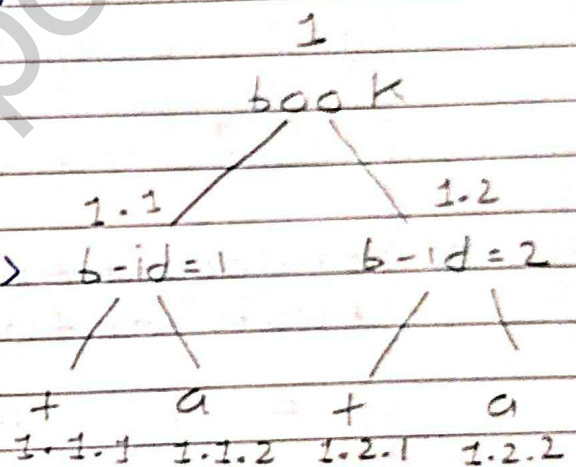 1
book
1.1 1.2
> b-id=1 b-id=2
t a t a
1.1.1 1.1.2 1.2.1 1.2.2